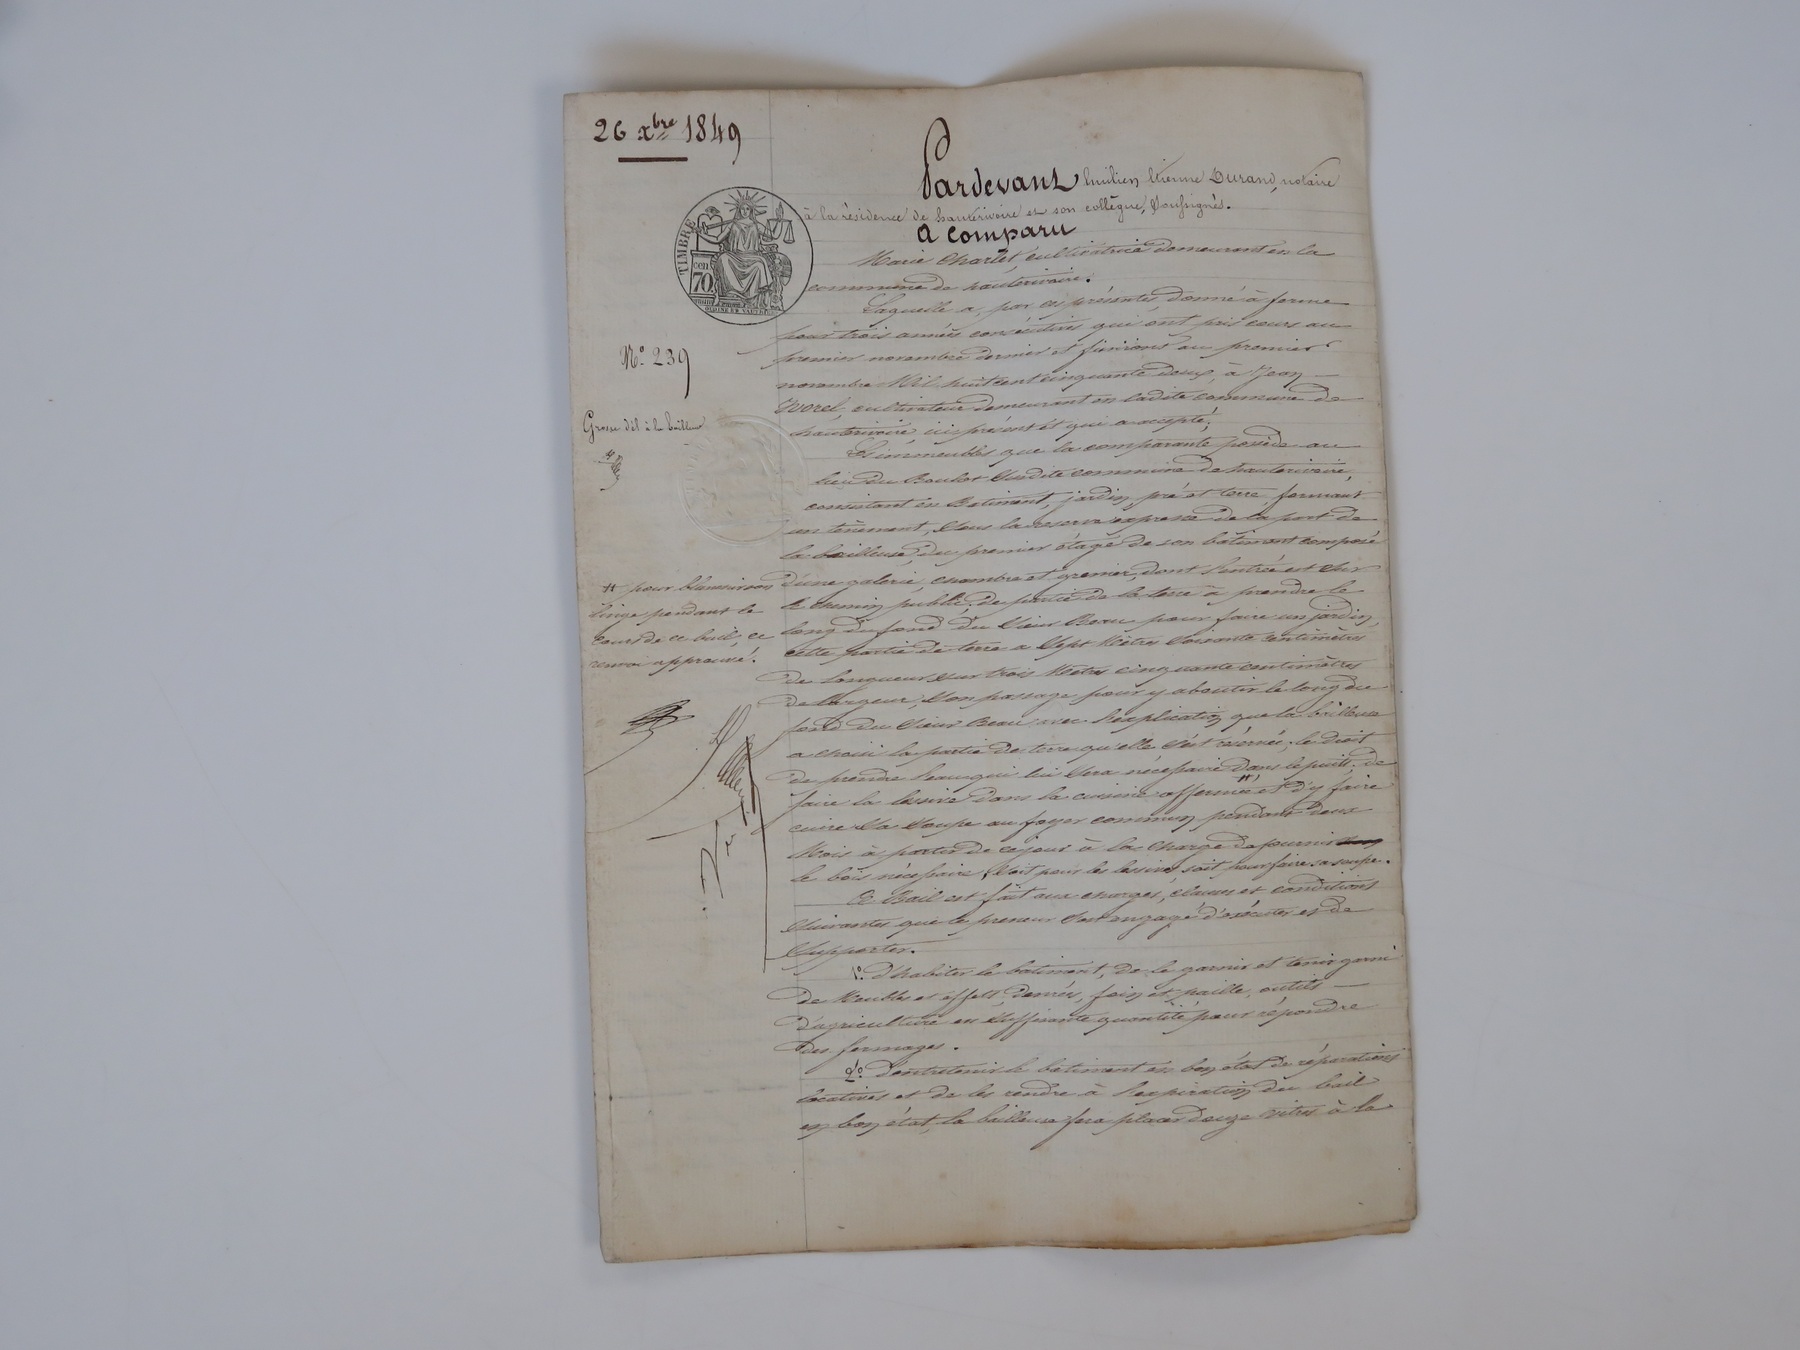 26 xbre 1849
Pardevant Emilien Etienne Durand, notaire
à la résidence de hauterivoire et son collègue, soussignés.
A comparu
TIMBRE
70
Marie Charlet, cultivatrice demeurant en la
commune de hauterivoire.
Laquelle a, par ces présentes, donné à ferme
pour trois années consécutives qui ont pris cours au
premier novembre dernier et finiront au premier
novembre Mil huit cent cinquante deux, à Jean
cultivateur demeurant en ladite commune de
hauterivoire, ici présent et qui a accepté,
Les immeubles que la comparante possède au
lieu du Boulot susdite commune de hauterivoire,
consistant en Batiment, jardin, pré et terre formant
un tènement, sous la réserve expresse de la part de
la bailleuse, du premier étage de son bâtiment composé
d'une galerie, chambre et grenier, dont l'entrée est sur
le chemin public, de partie de la terre à prendre le
long du fond du sieur Beau pour faire un jardin,
cette partie de terre a sept Mètres soixante centimètres
de longueur sur trois Mètres cinquante centimètres
de largeur, son passage pour y aboutir le long du
fond du sieur Beau avec l'explication que la bailleuse
a choisi la partie de terre qu'elle s'est réservée, le droit
de prendre l'eau qui lui sera nécessaire dans le puits, de
faire la lessive dans la cuisine affermée # et d'y faire
cuire sa soupe au foyer commun pendant deux
Mois à partir de ce jour à la charge de fournir
le bois nécessaire, soit pour les lessives, soit pour faire sa soupe.
Ce Bail est fait aux charges, clauses et conditions
suivantes que le preneur s'est engagé d'exécuter et de
supporter.
1o. d'habiter le batiment, de le garnir et tenir garni
de Meubles et effets, denrées, foin et paille, outils
d'agriculture en suffisante quantité pour répondre
des fermages.
2o. d'entretenir le batiment en bon état de réparations
locatives et de les rendre à l'expiration du bail
en bon état, la bailleuse fera placer douze vitres à la
No. 239
Grosse dél. à la bailleuse
# pour blanchir son
linge pendant le
cours de ce bail, ce
renvoi approuvé.